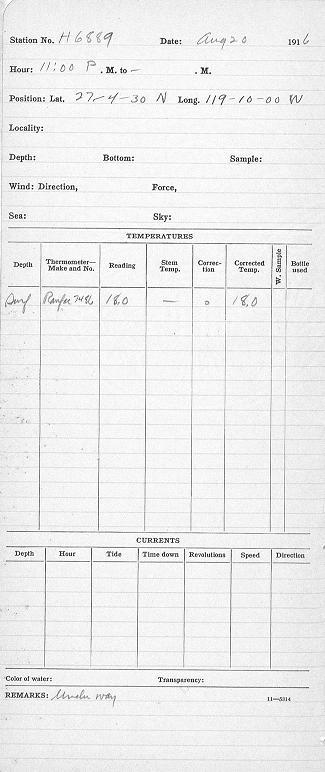 Station No. H6889 Date: Aug 20 1916
Hour: 11:00 P. M. to — . M.
Position: Lat. 27-4-30 N Long. 119-10-00 W
Locality:
Depth: Bottom: Sample:
Wind: Direction, Force,
Sea: Sky:
TEMPERATURES
Depth Thermometer—Make and No. Reading Stem Temp. Correction Corrected Temp. W. Sample Bottle used
Surf 7486 18.0 — 0 18.0
CURRENTS
Depth Hour Tide Time down Revolutions Speed Direction
Color of water: Transparency:
REMARKS: Under way
11—5314